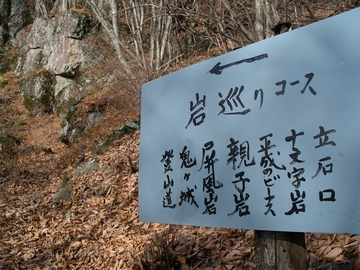 岩巡りコース
立石口
十文字岩
平成の
親子岩
屏風岩
鬼ヶ城
登山道